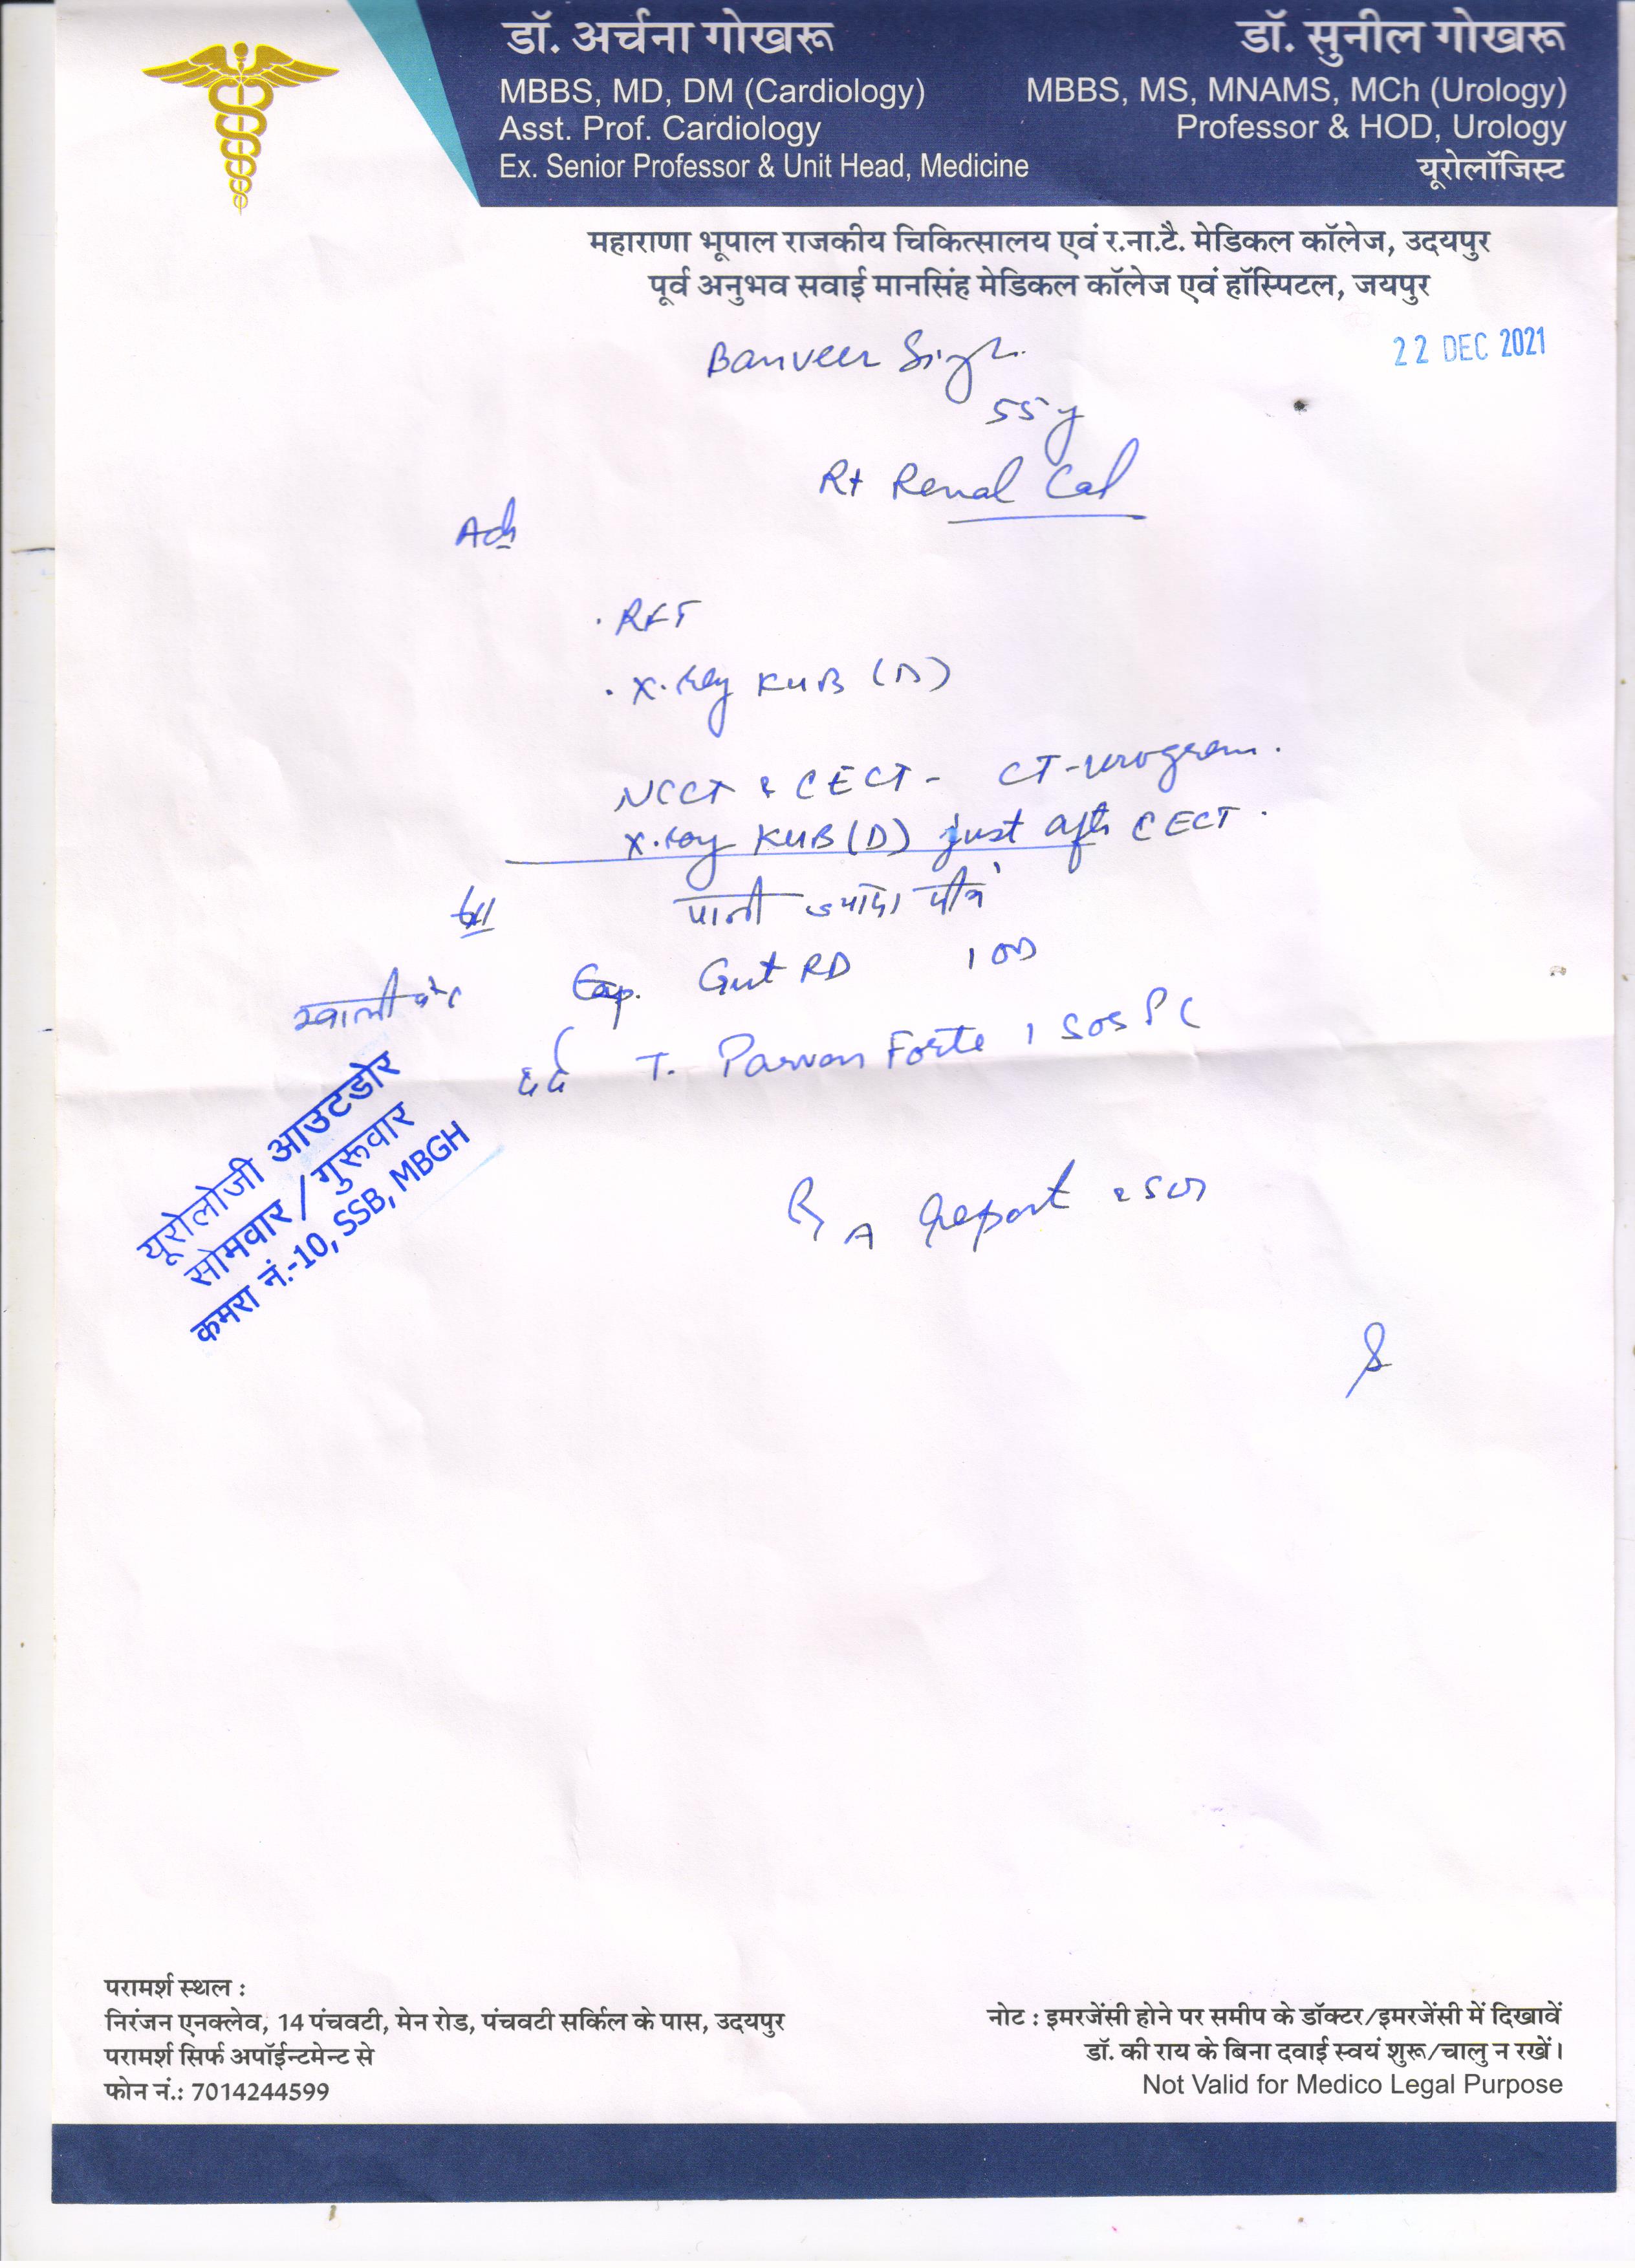 डॉ. अर्चना गोखरू
MBBS, MD, DM (Cardiology)
Asst. Prof. Cardiology
Ex. Senior Professor & Unit Head, Medicine
डॉ. सुनील गोखरू
MBBS, MS, MNAMS, MCh (Urology)
Professor & HOD, Urology
यूरोलॉजिस्ट
महाराणा भूपाल राजकीय चिकित्सालय एवं र.ना.टै. मेडिकल कॉलेज, उदयपुर
पूर्व अनुभव सवाई मानसिंह मेडिकल कॉलेज एवं हॉस्पिटल, जयपुर
22 DEC 2021
Banveer Singh
55 y
Rt Renal Cal
Adv
. RFT
. X-Ray KUB (D)
NCCT & CECT - CT-urogram.
X-ray KUB (D) just after CECT.
पानी ज्यादा पीये
खाली पेट Cap. Gut RD 1 OD
दर्द T. Parvon Forte 1 SOS PC
R A Report & SOS
यूरोलोजी आउटडोर
सोमवार / गुरूवार
कमरा नं.-10, SSB, MBGH
परामर्श स्थल :
निरंजन एनक्लेव, 14 पंचवटी, मेन रोड, पंचवटी सर्किल के पास, उदयपुर
परामर्श सिर्फ अपॉईन्टमेन्ट से
फोन नं.: 7014244599
नोट : इमरजेंसी होने पर समीप के डॉक्टर/इमरजेंसी में दिखावें
डॉ. की राय के बिना दवाई स्वयं शुरू/चालु न रखें।
Not Valid for Medico Legal Purpose